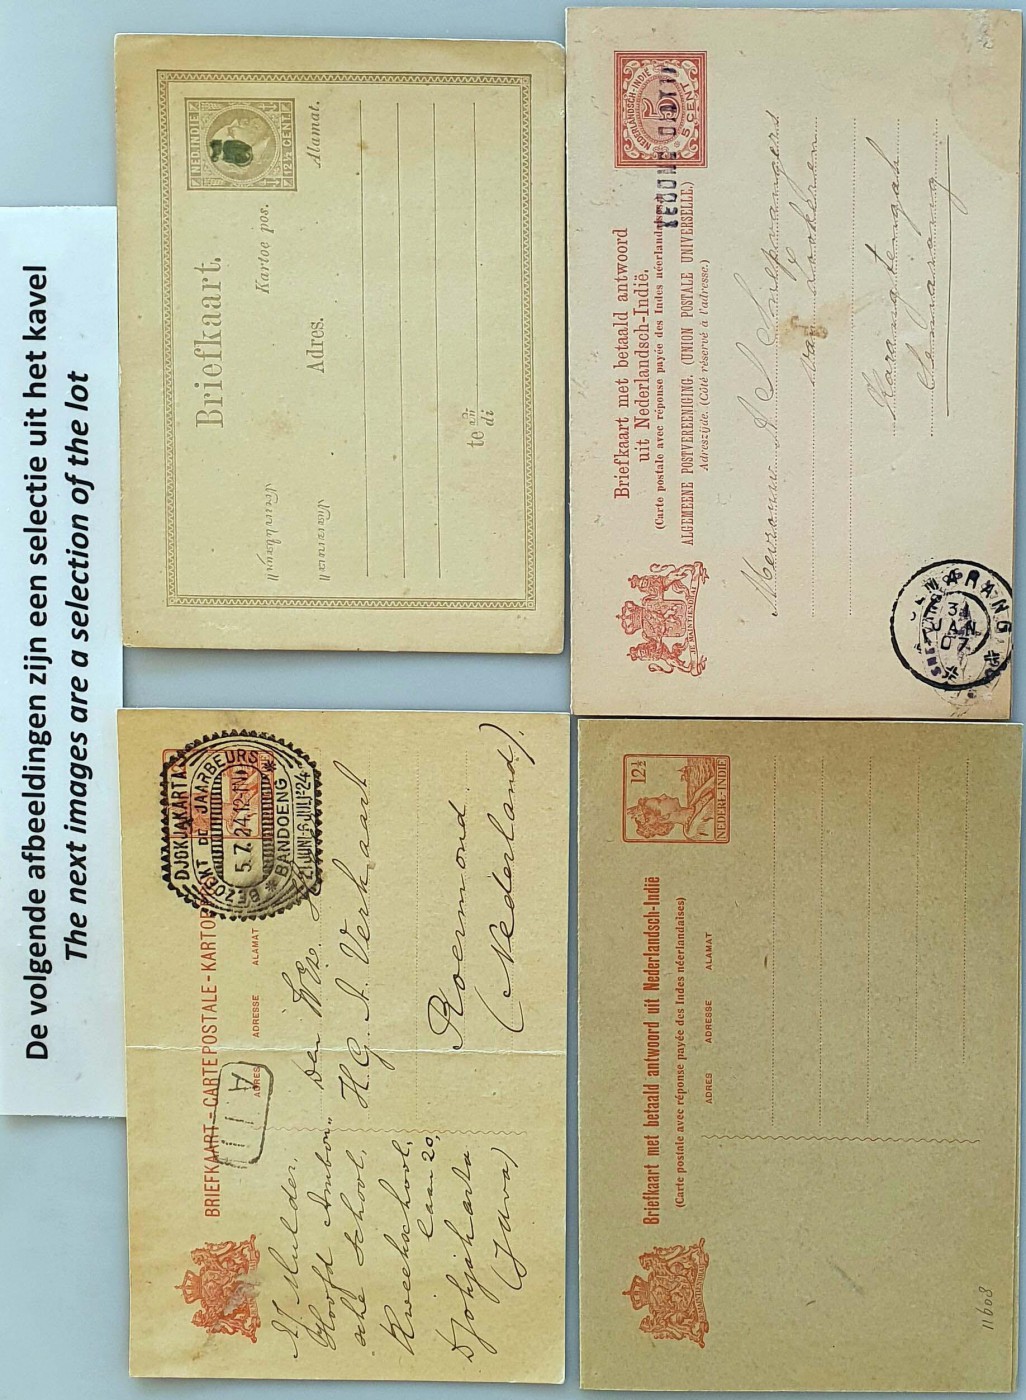 De volgende afbeeldingen zijn een selectie uit het kavel
The next images are a selection of the lot
NED. INDIE
12½ CENT.
Briefkaart.
Kartoe pos.
Alamat.
Adres.
te
di
NEDERLANDSCH-INDIË
5
5 CENT
KEDONG
Briefkaart met betaald antwoord
uit Nederlandsch-Indië.
(Carte postale avec réponse payée des Indes néerlandaises.)
ALGEMEENE POSTVEREENIGING. (UNION POSTALE UNIVERSELLE.)
Adreszijde. (Côté réservé à l'adresse.)
JE MAINTIENDRAI
Mevrouw A S
van Lookeren
Karangtengah
Semarang
SEMARANG
31
JAN
07
BRIEFKAART-CARTE POSTALE-KARTOE
ADRES ADRESSE ALAMAT
DJOKJAKARTA
BEZOEKT DE JAARBEURS
5.7.24.12-1N
BANDOENG
21 JUNI-6 JULI '24
A
A. Mulder.
Hoofd Ambon„
sche School,
Kweekschool,
laan 20,
Djokjakarta
(Java)
Den
H. G. A. Verkaart
Roermond.
(Nederland).
12½
NEDERL-INDIË
Briefkaart met betaald antwoord uit Nederlandsch-Indië
(Carte postale avec réponse payée des Indes néerlandaises)
ADRES ADRESSE ALAMAT
11608